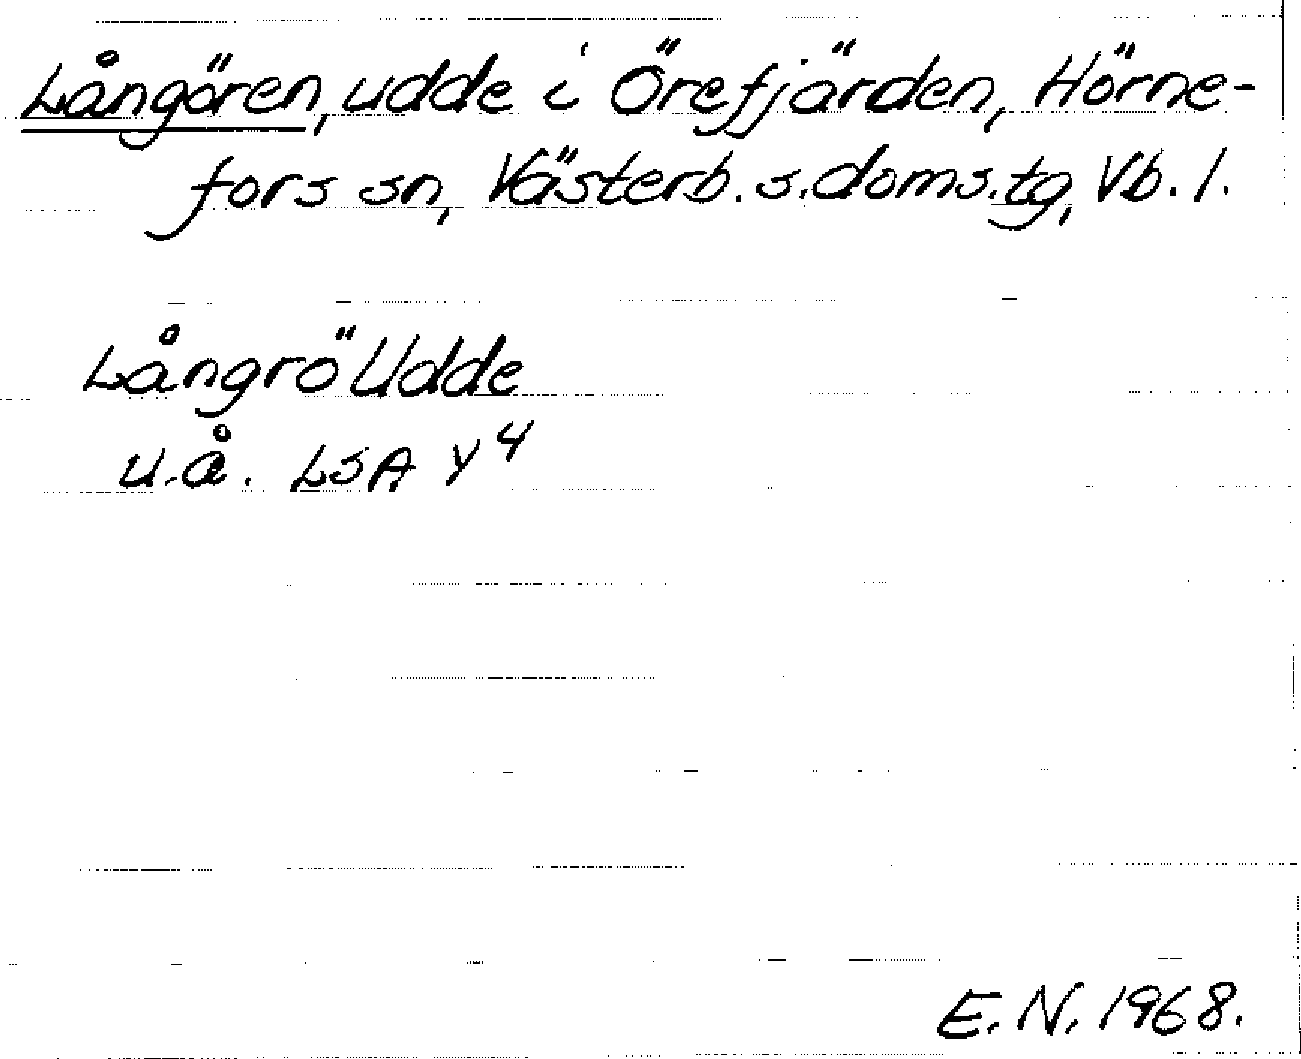 Långören, udde i Örefjärden, Hörne-
fors sn, Västerb. s. doms. tg, Vb. l.
Långrö Udde
u.å. LSA Y⁴
E. N. 1968.